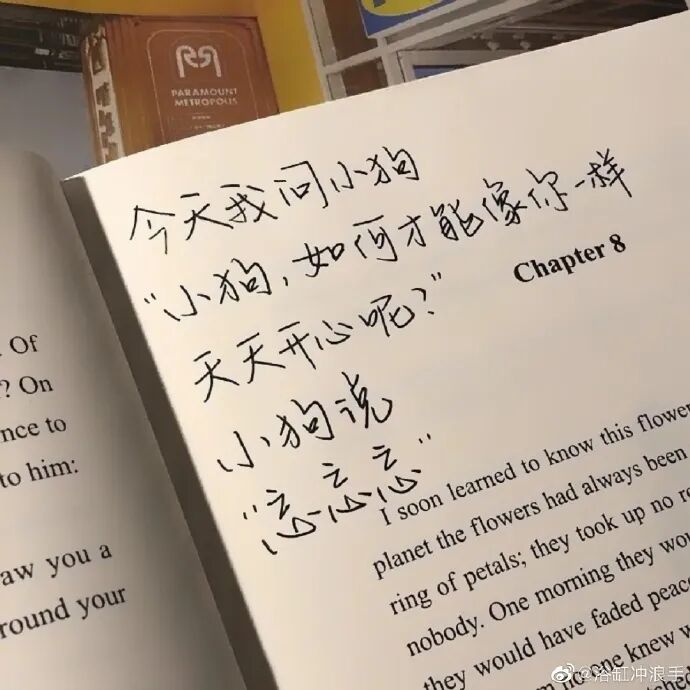 PARAMOUNT
METROPOLIS
今天我问小狗
“小狗，如何才能像你一样
天天开心呢？”
小狗说
“忘忘忘”
. Of
? On
nce to
to him:
aw you a
round your
Chapter 8
I soon learned to know this flower
planet the flowers had always been
ring of petals; they took up no
nobody. One morning they wou
they would have faded peac
one knew w
@浴缸冲浪手